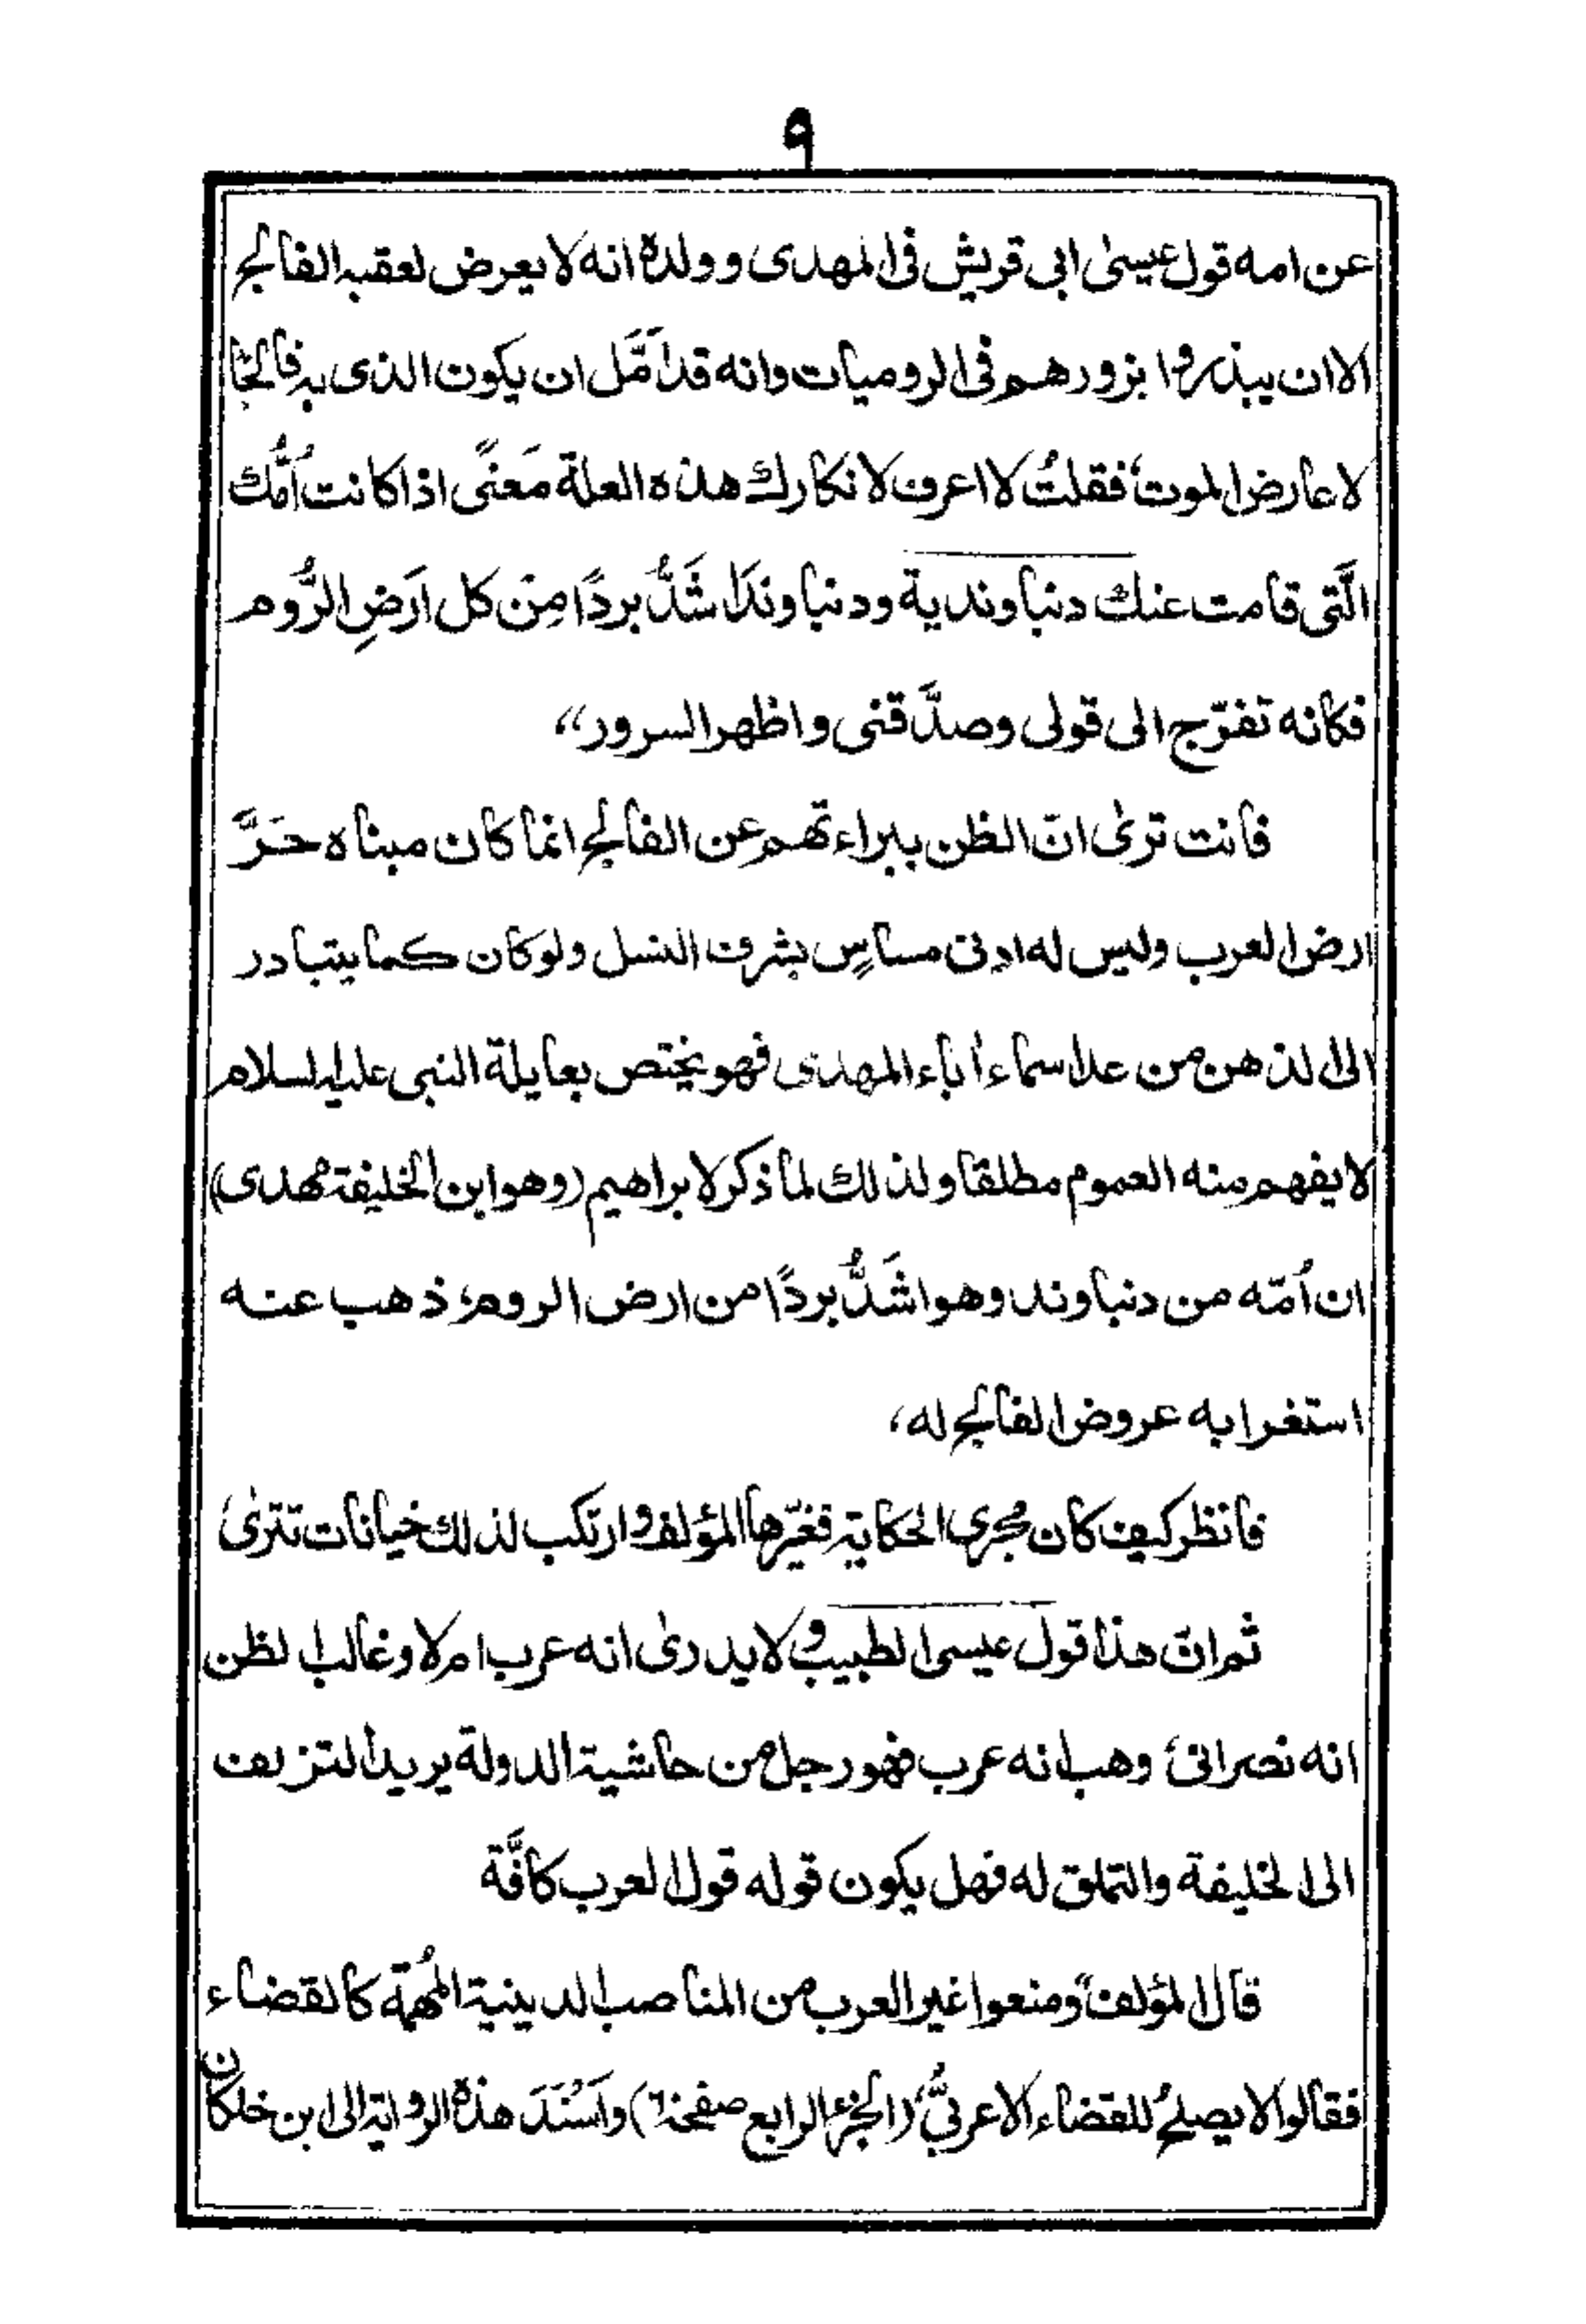 ٩
عن امه قول عيسىٰ ابى قريش فى المهدى وولدهٖ انه لا يعرض لعقبه الفالج
الا ان يبذروا بزورهم فى الروميات وانه قد اَمَّل ان يكون الذى به فالجا
لا عارض الموت؛ فقلتُ لا اعرف لانكارك هذه العلة مَعنًى اذا كانت اُمُّك
الَّتى قامت عنك دنباوندية ودنباوند اَشَدُّ بردًا مِن كل اَرَضِ الرُّوم
فكانه تفرّج الى قولى وصدَّقنى واظهر السرور،،
فانت ترىٰ انّ الظن ببراءتهم عن الفالج انما كان مبناه حَرَّ
ارض العرب وليس له ادنى مساسٍ بشرف النسل ولو كان كما يتبادر
الى الذهن من عد اسماء أباء المهدى فهو يختص بعايلة النبى عليه السلام
لا يفهم منه العموم مطلقا ولذلك لما ذكر لابراهيم (وهو ابن الخليفة مهدى)
ان اُمّه من دنباوند وهو اشَدُّ بردًا من ارض الروم، ذهب عنه
استغرابه عروض الفالج له،
فانظر كيف كان مجرى الحكاية فغيّرها المؤلف وارتكب لذلك خيانات تترىٰ
ثم انّ هذا قول عيسى الطبيب ولا يدرىٰ انه عرب ام لا وغالب الظن
انه نصرانىٌ وهب انه عرب فهو رجل من حاشية الدولة يريد التزلف
الى الخليفة والتملق له فهل يكون قوله قول العرب كافَّة
قال المؤلف ”ومنعوا غير العرب من المناصب الدينية المُهمة كالقضاء
فقالوا لا يصلحُ للقضاء الا عربيُّ“ (الجزء الرابع صفحة ٦) واَسْنَدَ هذه الرواية الى ابن خلكان